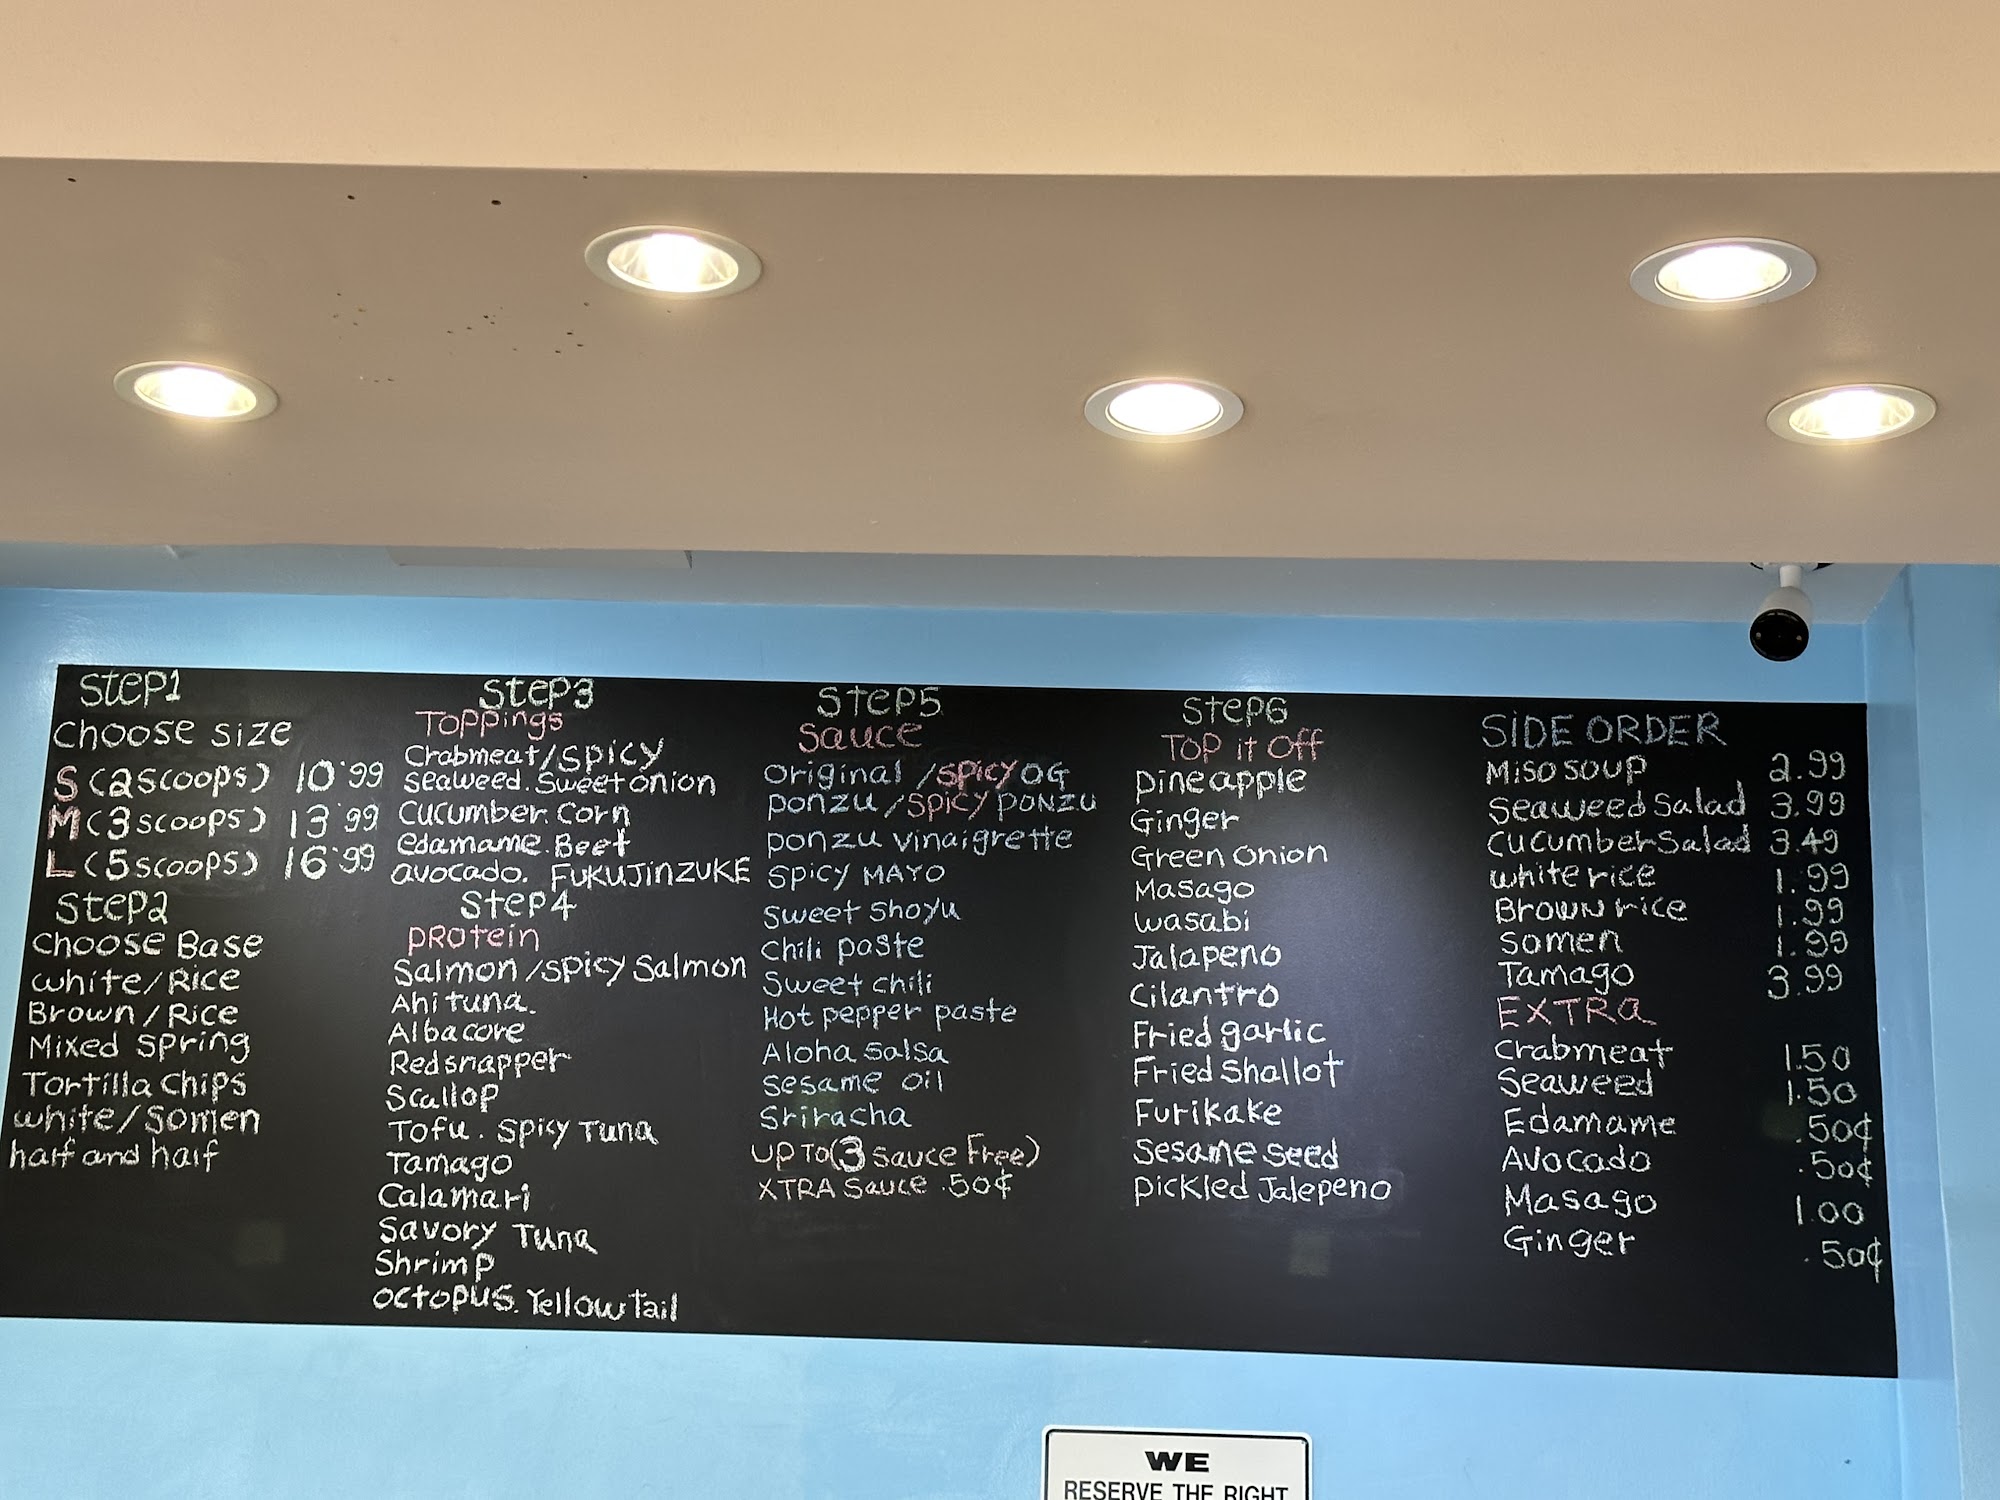 Step1
Choose Size
S (2 scoops) 10.99
M (3 scoops) 13.99
L (5 scoops) 16.99
Step2
Choose Base
White/Rice
Brown/Rice
Mixed Spring
Tortilla Chips
White/Somen
half and half
Step3
Toppings
Crabmeat/Spicy
Seaweed. Sweet onion
Cucumber. Corn
edamame. Beet
avocado. FUKUJINZUKE
Step4
Protein
Salmon/Spicy Salmon
Ahi tuna.
Albacore
Redsnapper
Scallop
Tofu. Spicy Tuna
Tamago
Calamari
Savory Tuna
Shrimp
Octopus. Yellow Tail
Step5
Sauce
Original/Spicy OG
Ponzu/Spicy PONZU
Ponzu vinaigrette
Spicy MAYO
Sweet Shoyu
Chili paste
Sweet chili
Hot pepper paste
Aloha Salsa
Sesame oil
Sriracha
UP TO (3 Sauce Free)
XTRA Sauce .50¢
Step6
TOP it Off
Pineapple
Ginger
Green Onion
Masago
Wasabi
Jalapeno
Cilantro
Fried garlic
Fried Shallot
Furikake
Sesame Seed
Pickled Jalepeno
SIDE ORDER
Miso soup 2.99
Seaweed Salad 3.99
Cucumber Salad 3.49
White rice 1.99
Brown rice 1.99
Somen 1.99
Tamago 3.99
EXTRA
Crabmeat 1.50
Seaweed 1.50
Edamame .50¢
Avocado .50¢
Masago 1.00
Ginger .50¢
WE
RESERVE THE RIGHT